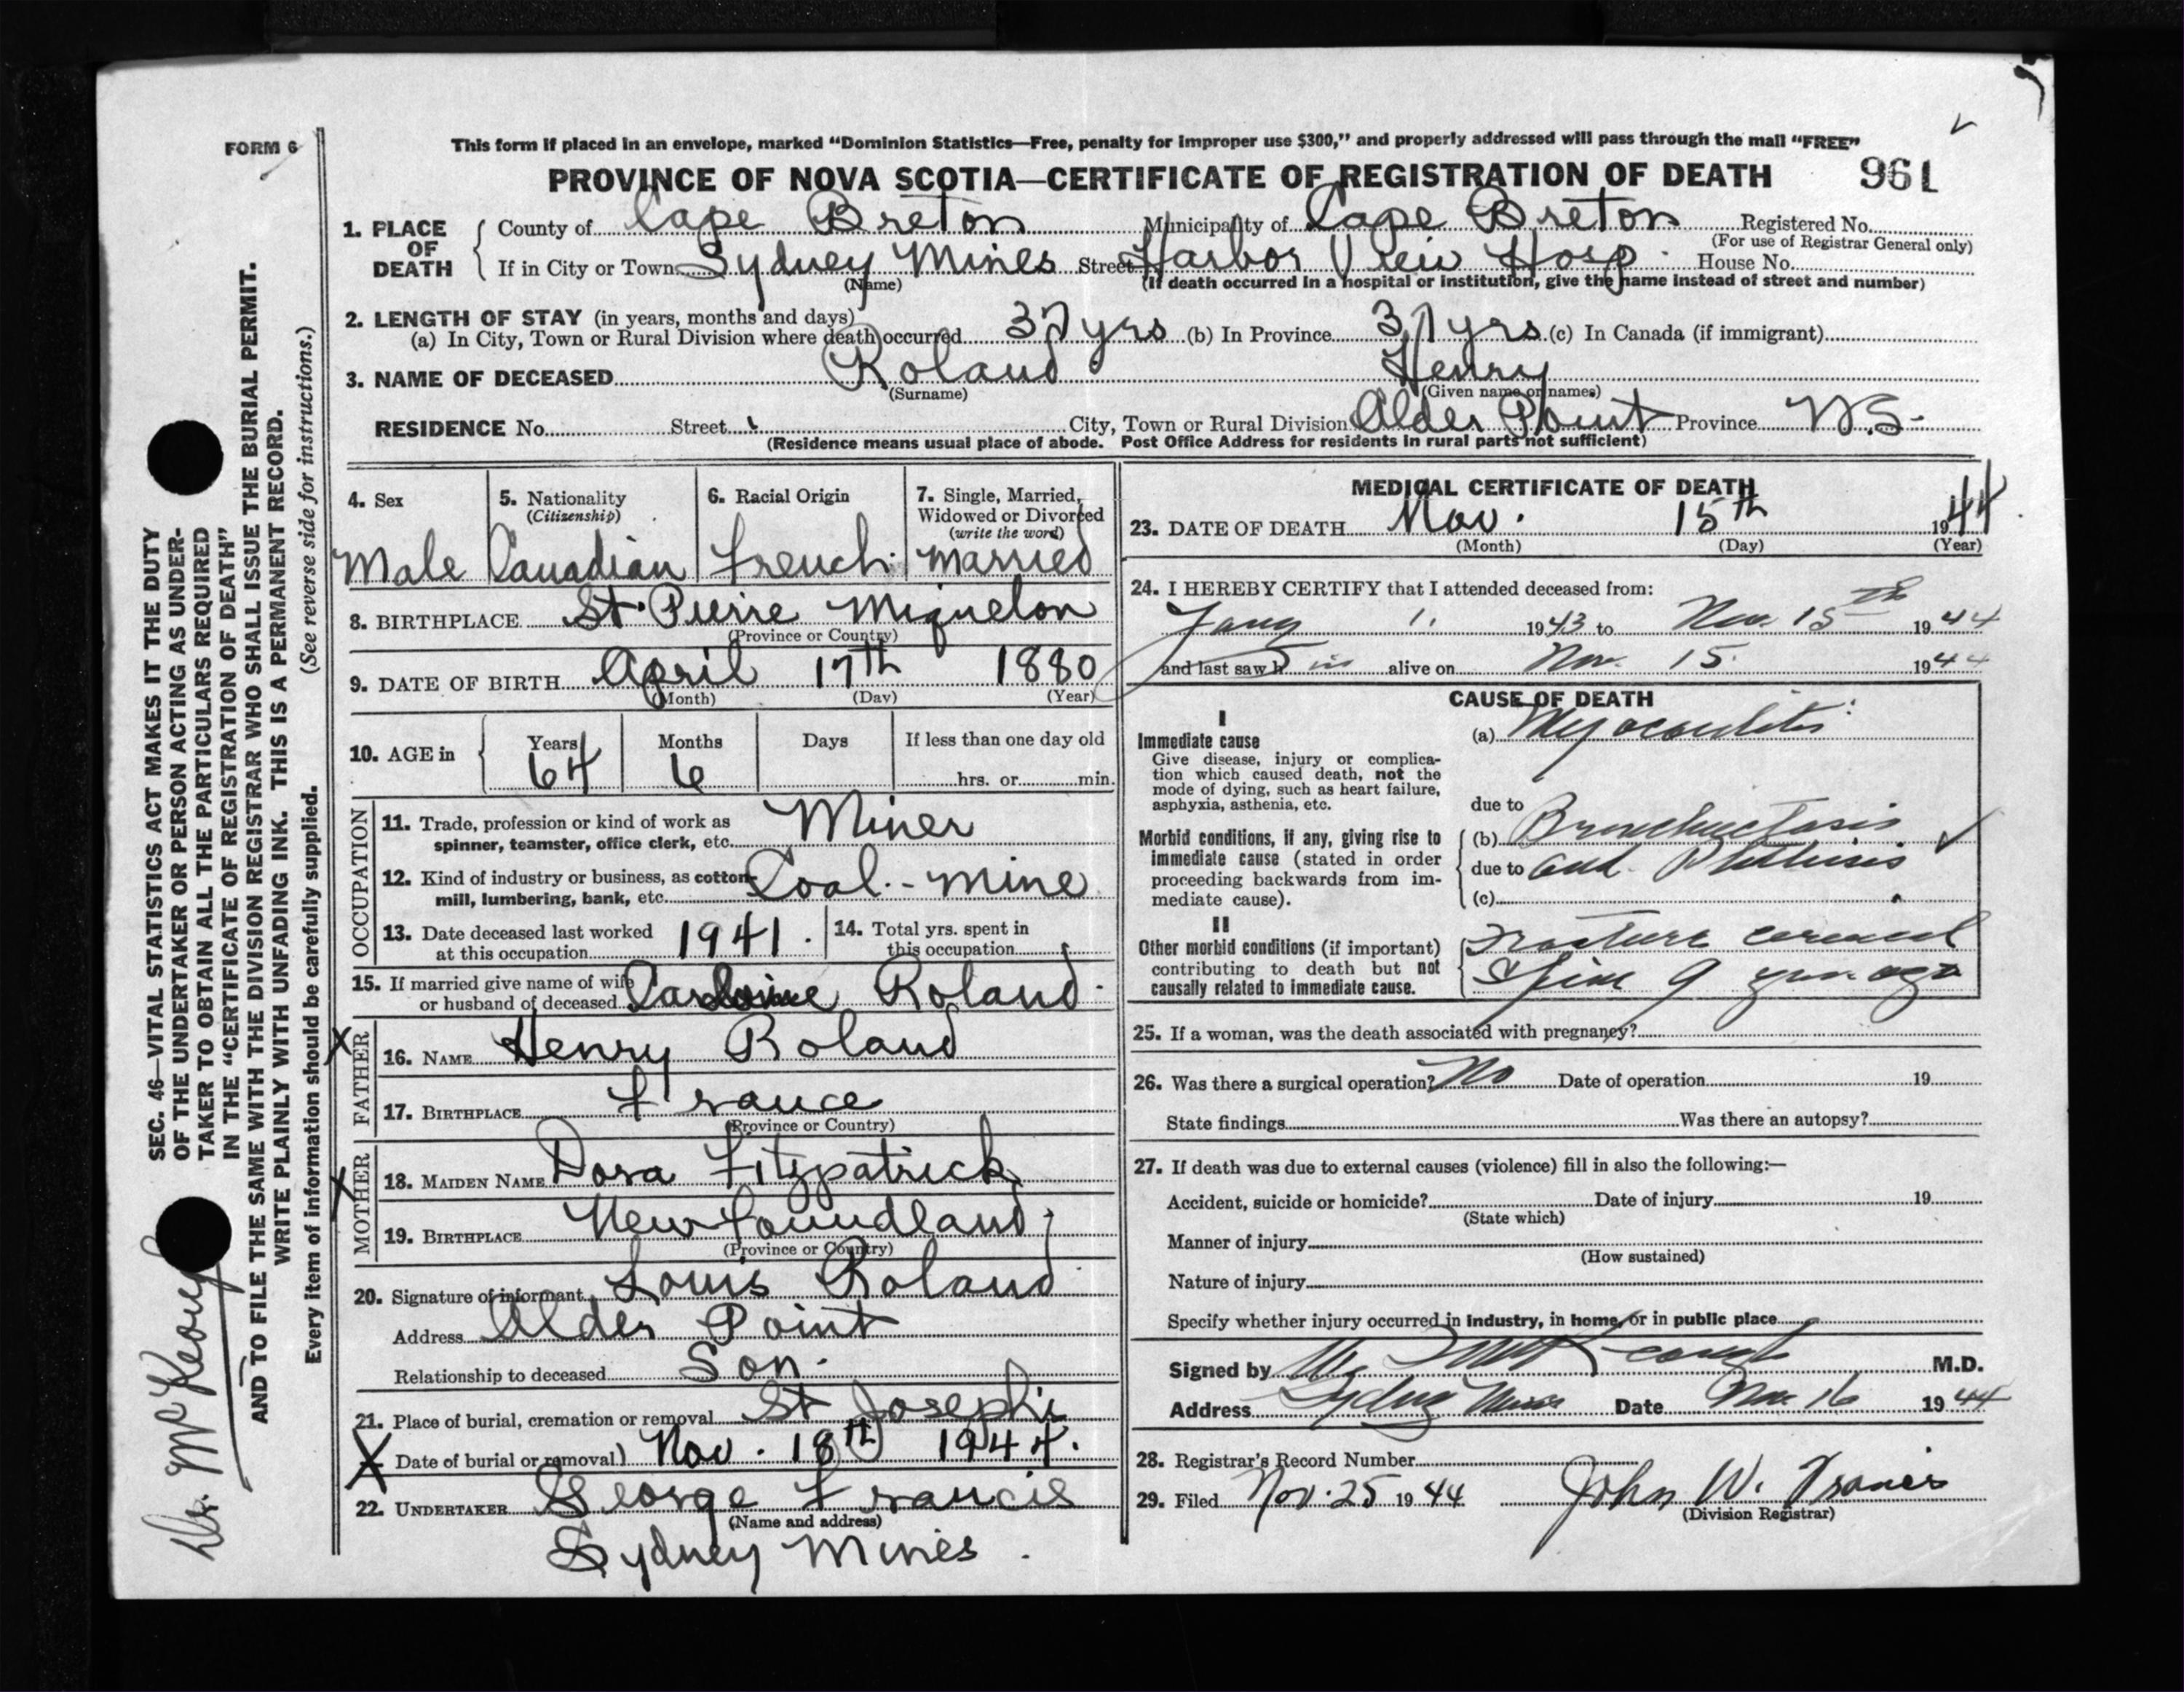 FORM 6
This form if placed in an envelope, marked “Dominion Statistics—Free, penalty for improper use $300,” and properly addressed will pass through the mail “FREE”
PROVINCE OF NOVA SCOTIA—CERTIFICATE OF REGISTRATION OF DEATH 961
1. PLACE OF DEATH
County of Cape Breton Municipality of Cape Breton Registered No.
(For use of Registrar General only)
If in City or Town Sydney Mines Street Harbor View Hosp. House No.
(Name) (If death occurred in a hospital or institution, give the name instead of street and number)
2. LENGTH OF STAY (in years, months and days)
(a) In City, Town or Rural Division where death occurred 37 yrs (b) In Province 37 yrs (c) In Canada (if immigrant)
3. NAME OF DECEASED Roland Henry
(Surname) (Given name or names)
RESIDENCE No. Street City, Town or Rural Division Alder Point Province N.S.
(Residence means usual place of abode. Post Office Address for residents in rural parts not sufficient)
4. Sex
Male
5. Nationality
(Citizenship)
Canadian
6. Racial Origin
French
7. Single, Married,
Widowed or Divorced
(write the word)
Married
8. BIRTHPLACE St. Pierre Miquelon
(Province or Country)
9. DATE OF BIRTH April 17th 1880
(Month) (Day) (Year)
10. AGE in
Years Months Days If less than one day old
64 6 hrs. or min.
OCCUPATION
11. Trade, profession or kind of work as
spinner, teamster, office clerk, etc. Miner
12. Kind of industry or business, as cotton-
mill, lumbering, bank, etc. Coal - mine
13. Date deceased last worked
at this occupation 1941.
14. Total yrs. spent in
this occupation
15. If married give name of wife
or husband of deceased Roland
FATHER
16. NAME Henry Roland
17. BIRTHPLACE France
(Province or Country)
MOTHER
18. MAIDEN NAME Dora Fitzpatrick
19. BIRTHPLACE Newfoundland
(Province or Country)
20. Signature of informant Louis Roland
Address Alder Point
Relationship to deceased Son.
21. Place of burial, cremation or removal St Josephs
Date of burial or removal) Nov. 18th 1944.
22. UNDERTAKER George Francis
(Name and address)
Sydney Mines.
MEDICAL CERTIFICATE OF DEATH
23. DATE OF DEATH Nov. 15th 1944
(Month) (Day) (Year)
24. I HEREBY CERTIFY that I attended deceased from:
Jany 1. 1943 to Nov. 15th 1944
and last saw h im alive on Nov. 15 1944
CAUSE OF DEATH
I
Immediate cause
Give disease, injury or complica-
tion which caused death, not the
mode of dying, such as heart failure,
asphyxia, asthenia, etc.
(a) Myocarditis
due to
Morbid conditions, if any, giving rise to
immediate cause (stated in order
proceeding backwards from im-
mediate cause).
(b) Bronchiectasis
due to and Phthisis
(c)
II
Other morbid conditions (if important)
contributing to death but not
causally related to immediate cause.
Fracture cervical
Spine 9 yrs. ago
25. If a woman, was the death associated with pregnancy?
26. Was there a surgical operation? No Date of operation 19
State findings Was there an autopsy?
27. If death was due to external causes (violence) fill in also the following:—
Accident, suicide or homicide? Date of injury 19
(State which)
Manner of injury
(How sustained)
Nature of injury
Specify whether injury occurred in industry, in home, or in public place
Signed by M.D.
Address Sydney Mines Date Nov. 16 1944
28. Registrar's Record Number
29. Filed Nov. 25 1944 John W. Francis
(Division Registrar)
SEC. 46—VITAL STATISTICS ACT MAKES IT THE DUTY
OF THE UNDERTAKER OR PERSON ACTING AS UNDER-
TAKER TO OBTAIN ALL THE PARTICULARS REQUIRED
IN THE “CERTIFICATE OF REGISTRATION OF DEATH”
AND TO FILE THE SAME WITH THE DIVISION REGISTRAR WHO SHALL ISSUE THE BURIAL PERMIT.
WRITE PLAINLY WITH UNFADING INK. THIS IS A PERMANENT RECORD.
Every item of information should be carefully supplied. (See reverse side for instructions.)
Dr. McKeough